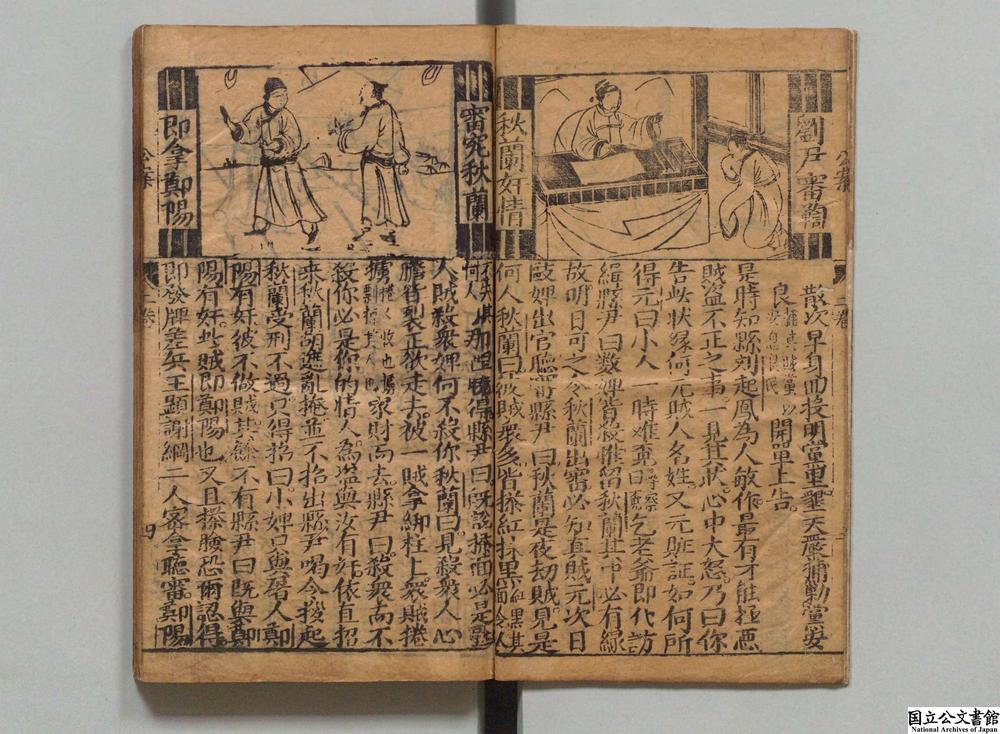 劉尹審鞫
秋蘭奸情
公案
二卷
散次早身即投明黨里墾天嚴捕勦黨安
良擒真賊黨以安息民開單上告
是時知縣刘起鳳為人敏作最有才能極惡
賊盜不正之事一見其狀心中大怒乃曰你
告此狀緣何无賊人名姓又元賍証如何所
得元曰小人一時难查乞老爺即代訪
緝縣尹曰数婢皆殺惟留秋蘭其中必有緣
故明日可之令秋蘭出審必知真賊元次日
敺婢出官聽審縣尹曰秋蘭是夜劫賊見是
何人秋蘭曰彼賊衆多皆搽紅抹黑面令人
審究秋蘭
即拿鄭陽
那里曉得縣尹曰既説搽面必是
人賊殺衆婢如何不殺你秋蘭曰見殺衆人心
膽皆裂正欲走去被一賊拿綁柱上衆賊捲
擄家財而去縣尹曰殺衆而不
殺你必是你的情人為盜與汝有奸依直招
來秋蘭胡遮亂掩並不招出縣尹喝令拶起
秋蘭受刑不過只得招曰小婢只與屠人鄭
陽有奸彼不做賊其餘不有縣尹曰既與鄭
陽有奸此賊即鄭陽也又且搽臉恐爾認得
即發牌差兵王顯謝綱二人密拿聽審鄭陽
公案
二卷
四
国立公文書館
National Archives of Japan